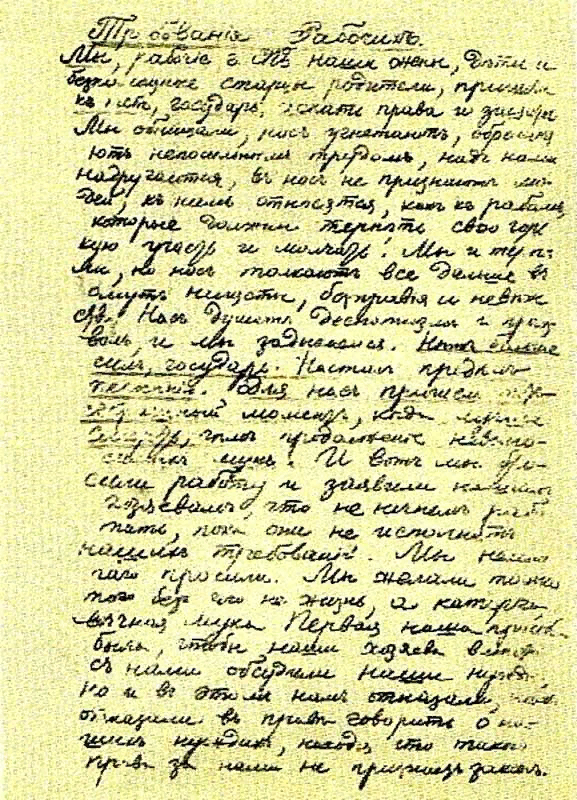 Требованія Рабочихъ.
Мы, рабочіе и наши жены, дѣти и
безпомощные старцы родители, пришли
къ тебѣ, государь, искать правды и защиты
Мы обнищали, насъ угнетаютъ, обременя
ютъ непосильнымъ трудомъ, надъ нами
надругаются, въ насъ не признаютъ лю
дей, къ намъ относятся, какъ къ рабамъ,
которые должны терпѣть свою горь
кую участь и молчать! Мы и терпѣ
ли, но насъ толкаютъ все дальше въ
омутъ нищеты, безправья и невѣже
ства. Насъ душитъ деспотизмъ и произ
волъ, и мы задыхаемся. Нѣтъ больше
силъ, государь. Насталъ предѣлъ
терпѣнія. Для насъ пришелъ
моментъ, когда лучше
смерть, чѣмъ продолженіе невыно
симыхъ мукъ. И вотъ мы бро
сили работу и заявили нашимъ
хозяевамъ, что не начнемъ рабо
тать, пока они не исполнятъ
нашихъ требованій. Мы немно
гаго просили. Мы желали только
того безъ чего не жизнь, а каторга,
вѣчная мука. Первая наша просьба
была, чтобы наши хозяева вмѣстѣ
съ нами обсудили наши нужды,
но и въ этомъ намъ отказали, намъ
отказали въ правѣ говорить о на
шихъ нуждахъ, находя, что такого
права за нами не признаетъ законъ.